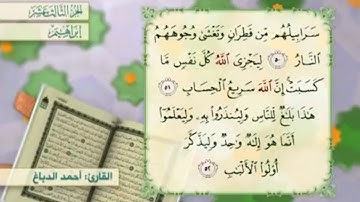 الجزء الثالث عشر
إبراهيم
سَرَابِيلُهُم مِّن قَطِرَانٍ وَتَغْشَىٰ وُجُوهَهُمُ
ٱلنَّارُ ٥٠ لِيَجْزِيَ ٱللَّهُ كُلَّ نَفْسٍ مَّا
كَسَبَتْ إِنَّ ٱللَّهَ سَرِيعُ ٱلْحِسَابِ ٥١
هَٰذَا بَلَٰغٌ لِّلنَّاسِ وَلِيُنذَرُوا۟ بِهِۦ وَلِيَعْلَمُوٓا۟
أَنَّمَا هُوَ إِلَٰهٌ وَٰحِدٌ وَلِيَذَّكَّرَ
أُو۟لُوا۟ ٱلْأَلْبَٰبِ ٥٢
القارئ: أحمد الدباغ